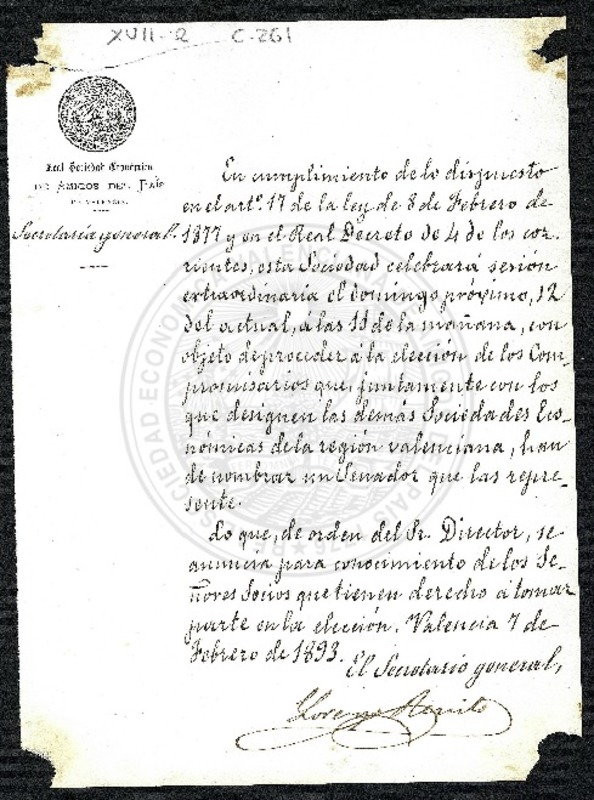 XVII-2 C-261
Real Sociedad Económica
DE AMIGOS DEL PAÍS
DE VALENCIA.
Secretaría general.
En cumplimiento de lo dispuesto
en el artº. 17 de la ley de 8 de Febrero de
1877 y en el Real Decreto de 4 de los cor-
rientes, esta Sociedad celebrará sesión
extraordinaria el domingo próximo, 12
del actual, á las 11 de la mañana, con
objeto de proceder á la elección de los Com-
promisarios que, juntamente con los
que designen las demás Sociedades Eco-
nómicas de la región valenciana, han
de nombrar un Senador que las repre-
sente.
Lo que, de orden del Sr. Director, se
anuncia para conocimiento de los Se-
ñores Socios que tienen derecho á tomar
parte en la elección. Valencia 7 de
Febrero de 1893.
El Secretario general,
Lorenzo Benito